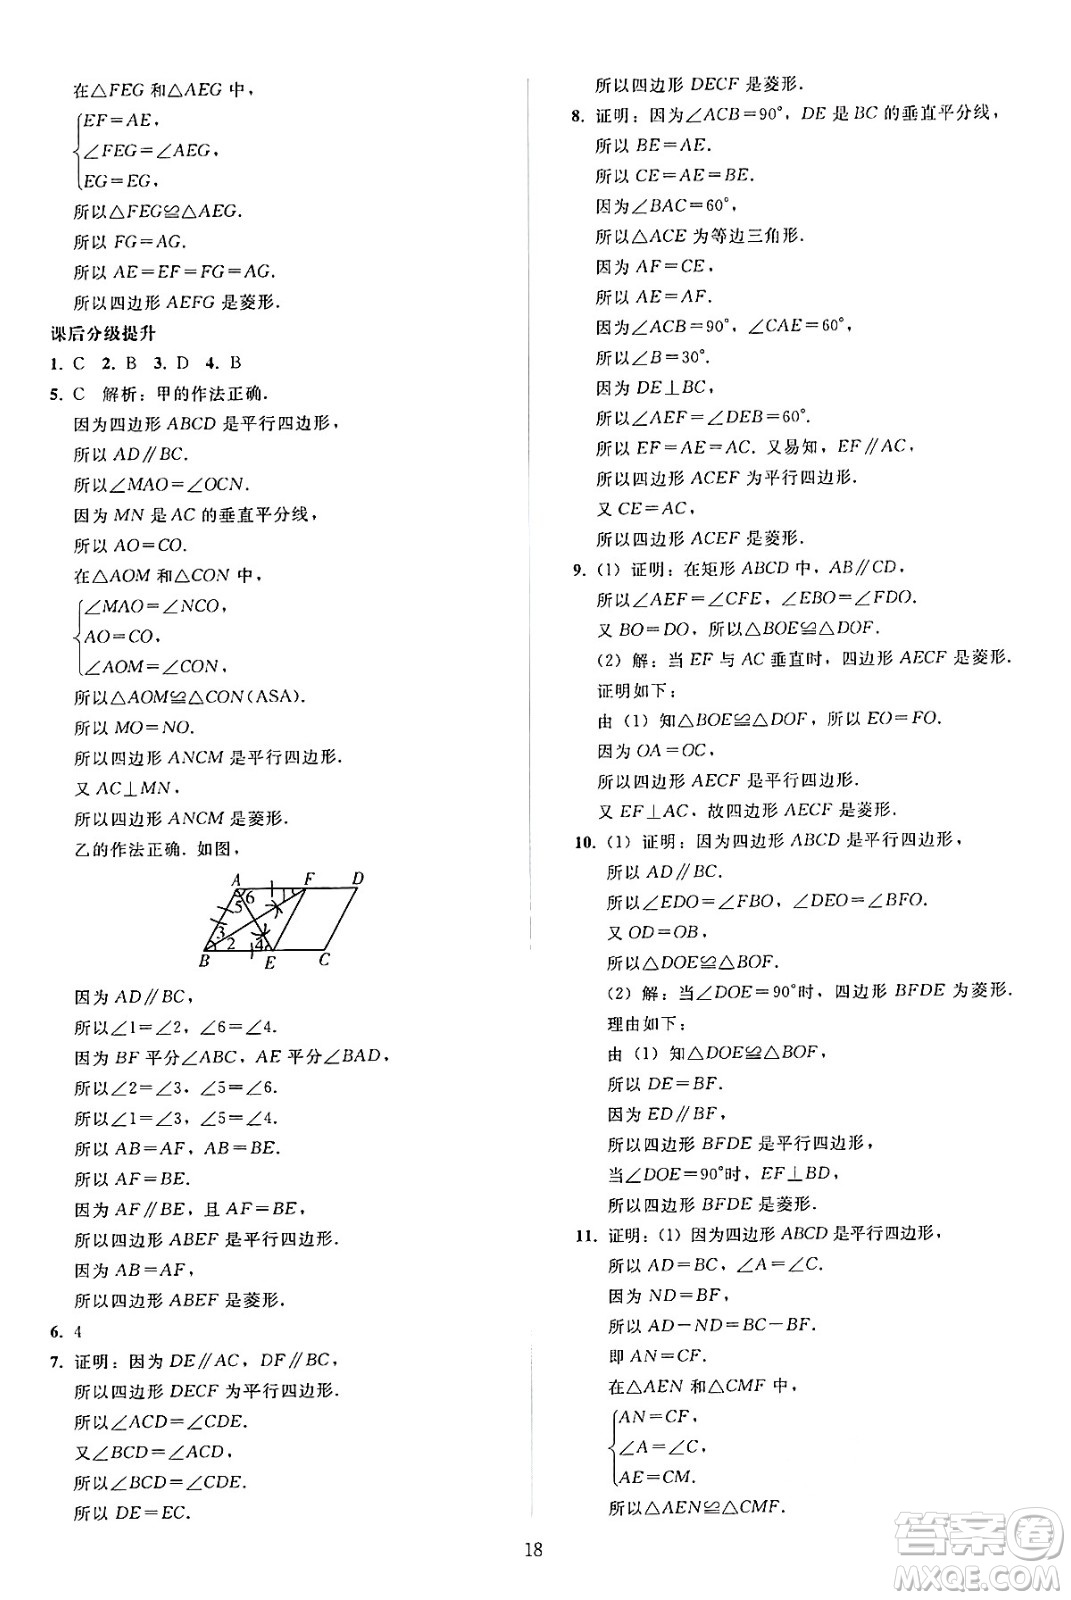 在△FEG 和△AEG 中，
EF＝AE，
∠FEG＝∠AEG，
EG＝EG，
所以△FEG≌△AEG.
所以 FG＝AG.
所以 AE＝EF＝FG＝AG.
所以四边形 AEFG 是菱形.
课后分级提升
1. C 2. B 3. D 4. B
5. C 解析：甲的作法正确.
因为四边形 ABCD 是平行四边形，
所以 AD∥BC.
所以∠MAO＝∠OCN.
因为 MN 是 AC 的垂直平分线，
所以 AO＝CO.
在△AOM 和△CON 中，
∠MAO＝∠NCO，
AO＝CO，
∠AOM＝∠CON，
所以△AOM≌△CON(ASA).
所以 MO＝NO.
所以四边形 ANCM 是平行四边形.
又 AC⊥MN，
所以四边形 ANCM 是菱形.
乙的作法正确. 如图，
A F D
6 1
5
3
2 4
B E C
因为 AD∥BC，
所以∠1＝∠2，∠6＝∠4.
因为 BF 平分∠ABC，AE 平分∠BAD，
所以∠2＝∠3，∠5＝∠6.
所以∠1＝∠3，∠5＝∠4.
所以 AB＝AF，AB＝BE.
所以 AF＝BE.
因为 AF∥BE，且 AF＝BE，
所以四边形 ABEF 是平行四边形.
因为 AB＝AF，
所以四边形 ABEF 是菱形.
6. 4
7. 证明：因为 DE∥AC，DF∥BC，
所以四边形 DECF 为平行四边形.
所以∠ACD＝∠CDE.
又∠BCD＝∠ACD，
所以∠BCD＝∠CDE.
所以 DE＝EC.
所以四边形 DECF 是菱形.
8. 证明：因为∠ACB＝90°，DE 是 BC 的垂直平分线，
所以 BE＝AE.
所以 CE＝AE＝BE.
因为∠BAC＝60°，
所以△ACE 为等边三角形.
因为 AF＝CE，
所以 AE＝AF.
因为∠ACB＝90°，∠CAE＝60°，
所以∠B＝30°.
因为 DE⊥BC，
所以∠AEF＝∠DEB＝60°.
所以 EF＝AE＝AC. 又易知，EF∥AC，
所以四边形 ACEF 为平行四边形.
又 CE＝AC，
所以四边形 ACEF 是菱形.
9. (1) 证明：在矩形 ABCD 中，AB∥CD，
所以∠AEF＝∠CFE，∠EBO＝∠FDO.
又 BO＝DO，所以△BOE≌△DOF.
(2) 解：当 EF 与 AC 垂直时，四边形 AECF 是菱形.
证明如下：
由 (1) 知△BOE≌△DOF，所以 EO＝FO.
因为 OA＝OC，
所以四边形 AECF 是平行四边形.
又 EF⊥AC，故四边形 AECF 是菱形.
10. (1) 证明：因为四边形 ABCD 是平行四边形，
所以 AD∥BC.
所以∠EDO＝∠FBO，∠DEO＝∠BFO.
又 OD＝OB，
所以△DOE≌△BOF.
(2) 解：当∠DOE＝90°时，四边形 BFDE 为菱形.
理由如下：
由 (1) 知△DOE≌△BOF，
所以 DE＝BF.
因为 ED∥BF，
所以四边形 BFDE 是平行四边形，
当∠DOE＝90°时，EF⊥BD，
所以四边形 BFDE 是菱形.
11. 证明：(1) 因为四边形 ABCD 是平行四边形，
所以 AD＝BC，∠A＝∠C.
因为 ND＝BF，
所以 AD－ND＝BC－BF.
即 AN＝CF.
在△AEN 和△CMF 中，
AN＝CF，
∠A＝∠C，
AE＝CM.
所以△AEN≌△CMF.
18
答案圈
MXQE.COM